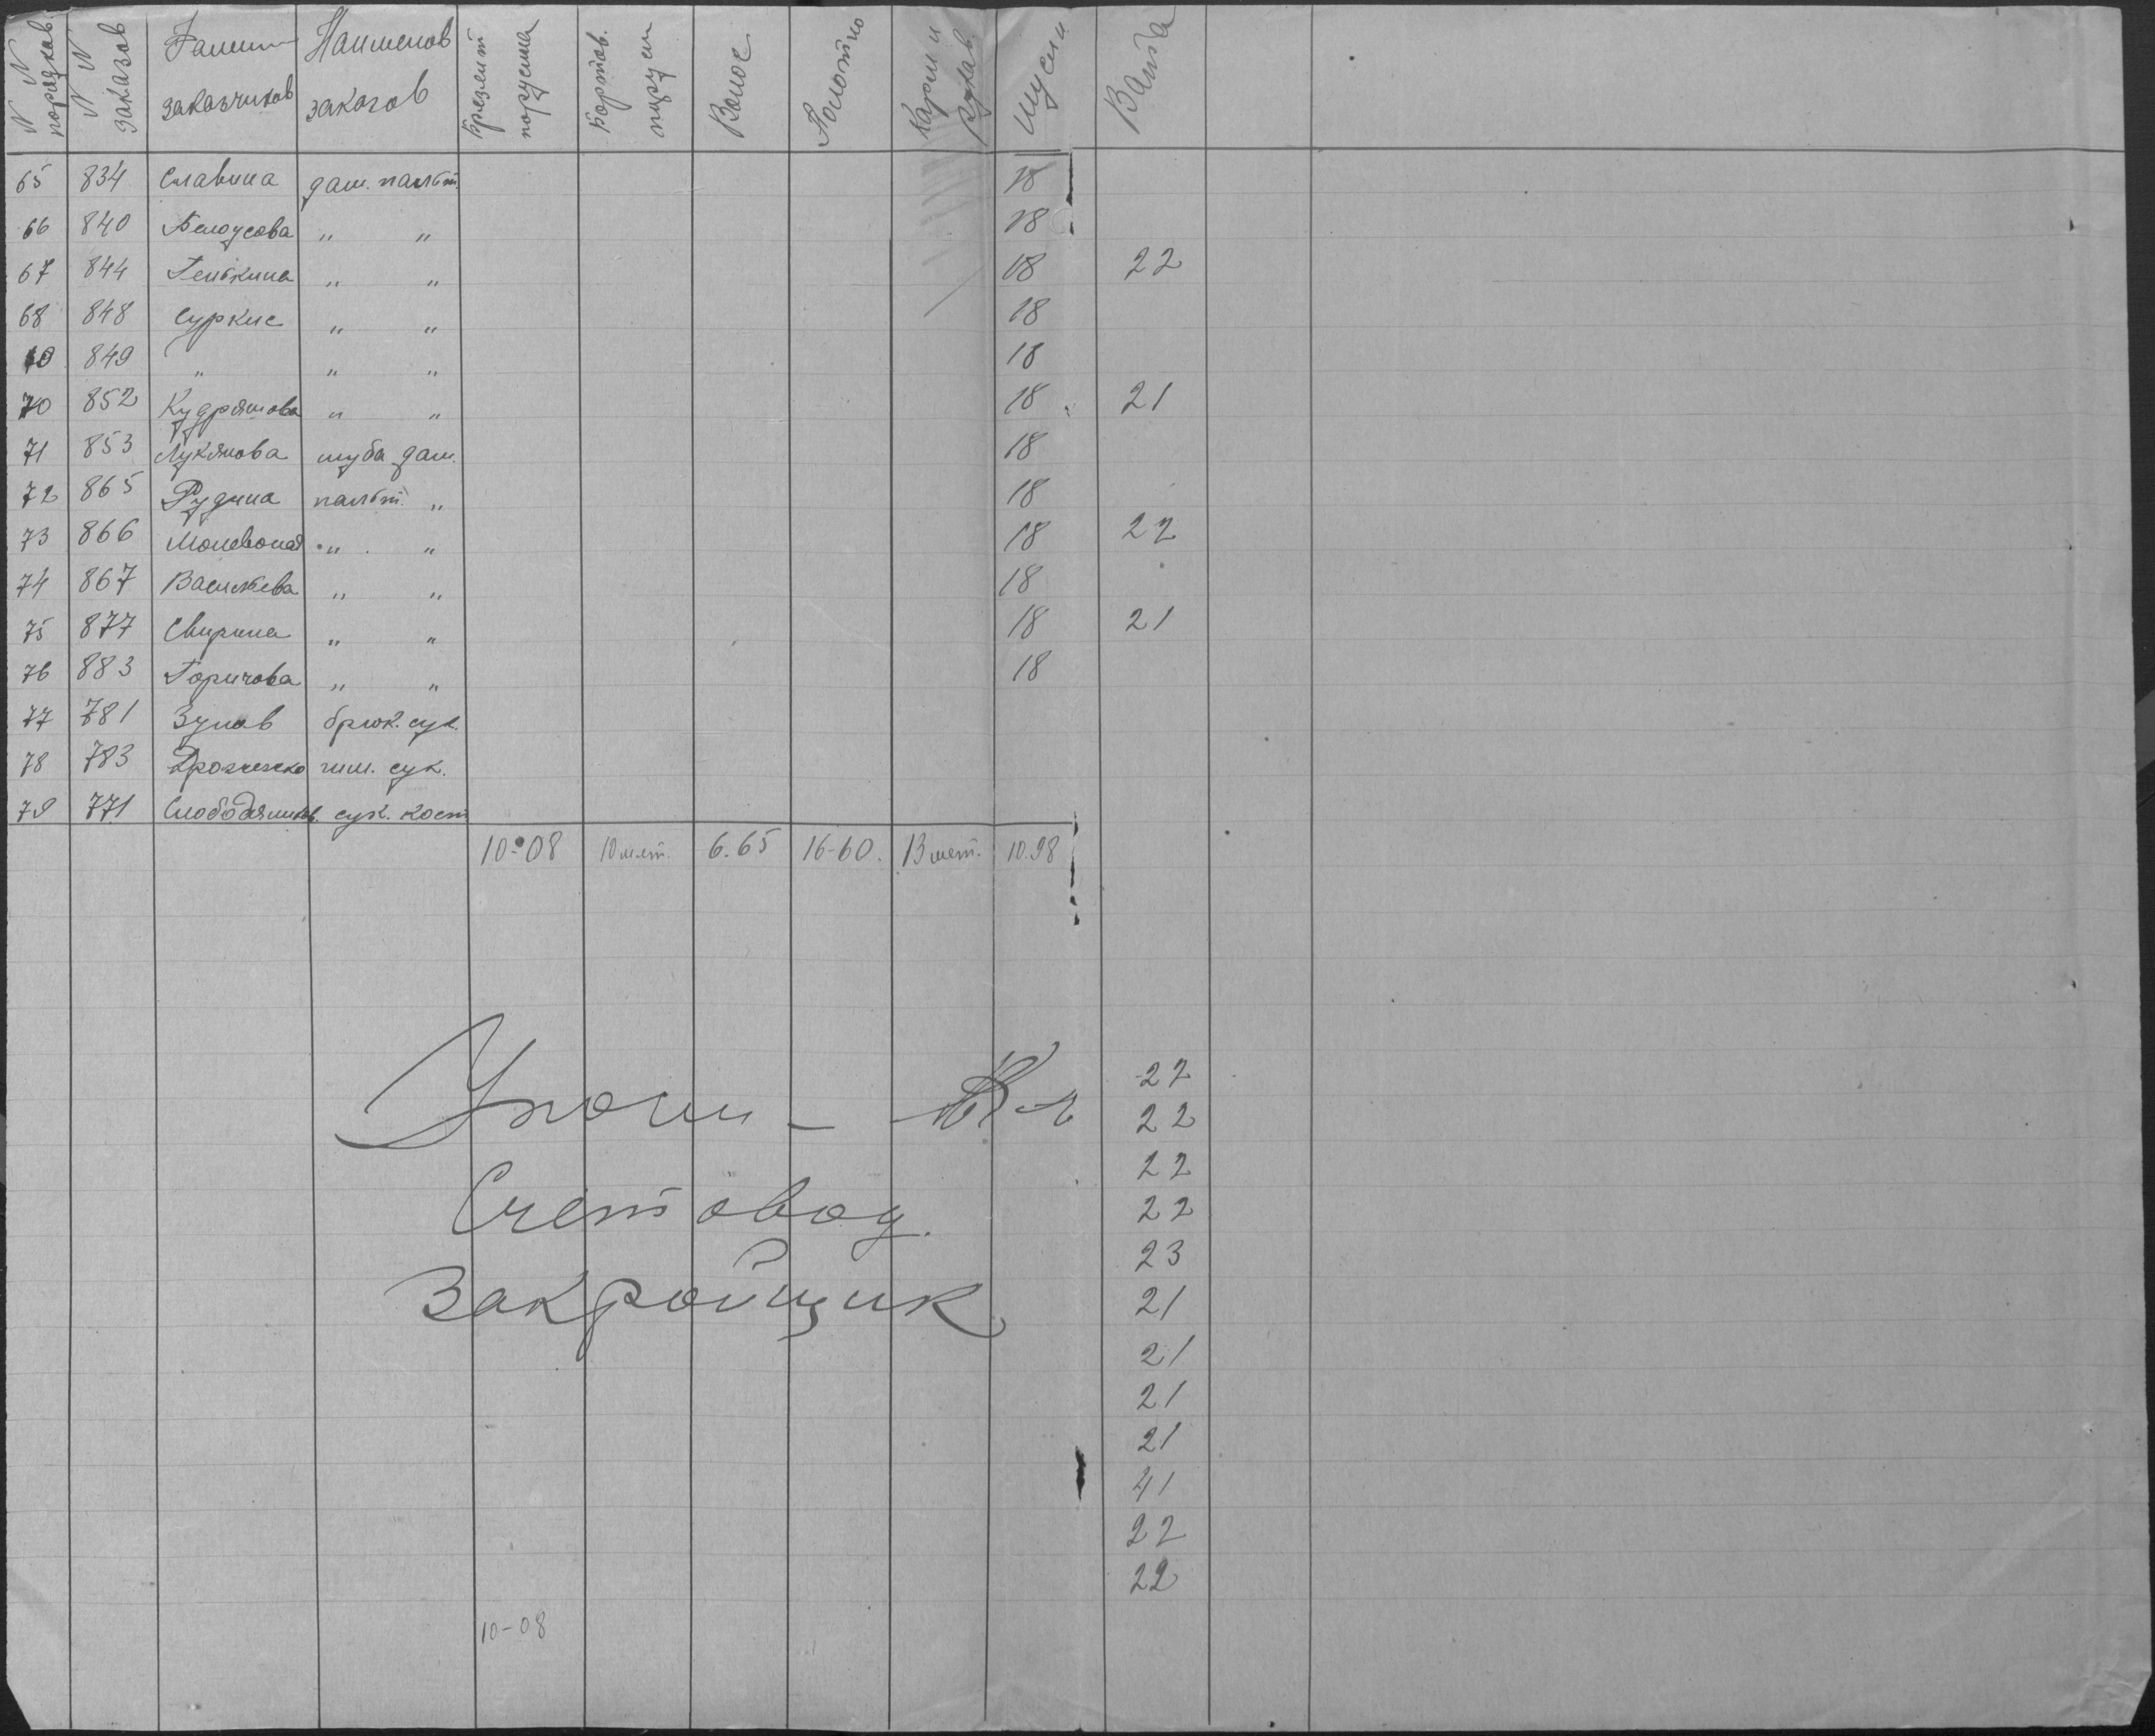 N N порядков. N N заказов Фамил заказчиков Наименов заказов Брезент парусина Бортов. парусин Волос Полотно Карман Рукав. Муслин Вата
65 834 Славина дам. пальт. 18
66 840 Белоусова " " 18
67 844 Генкина " " 18 22
68 848 Суркис " " 18
849 " " " 18
70 852 Кудряшова " " 18 21
71 853 Лукянова шуба дам. 18
72 865 Рудина пальт. " 18
73 866 " " 18 22
74 867 Васильева " " 18
75 877 Свирина " " 18 21
76 883 Горичова " " 18
77 781 Зунов брюк. сук.
78 783 гим. сук.
79 771 сук. кост
10-08 10 мет. 6.65 16-60. 13 мет. 10.98
22
22
22
Счетовод.
22
23
Закройщик
21
21
21
21
41
22
22
10-08